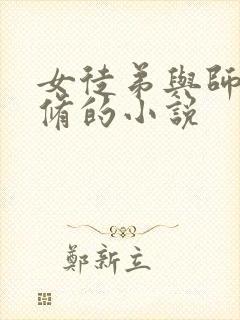 女徒弟與師
脩的小說
鄭新立